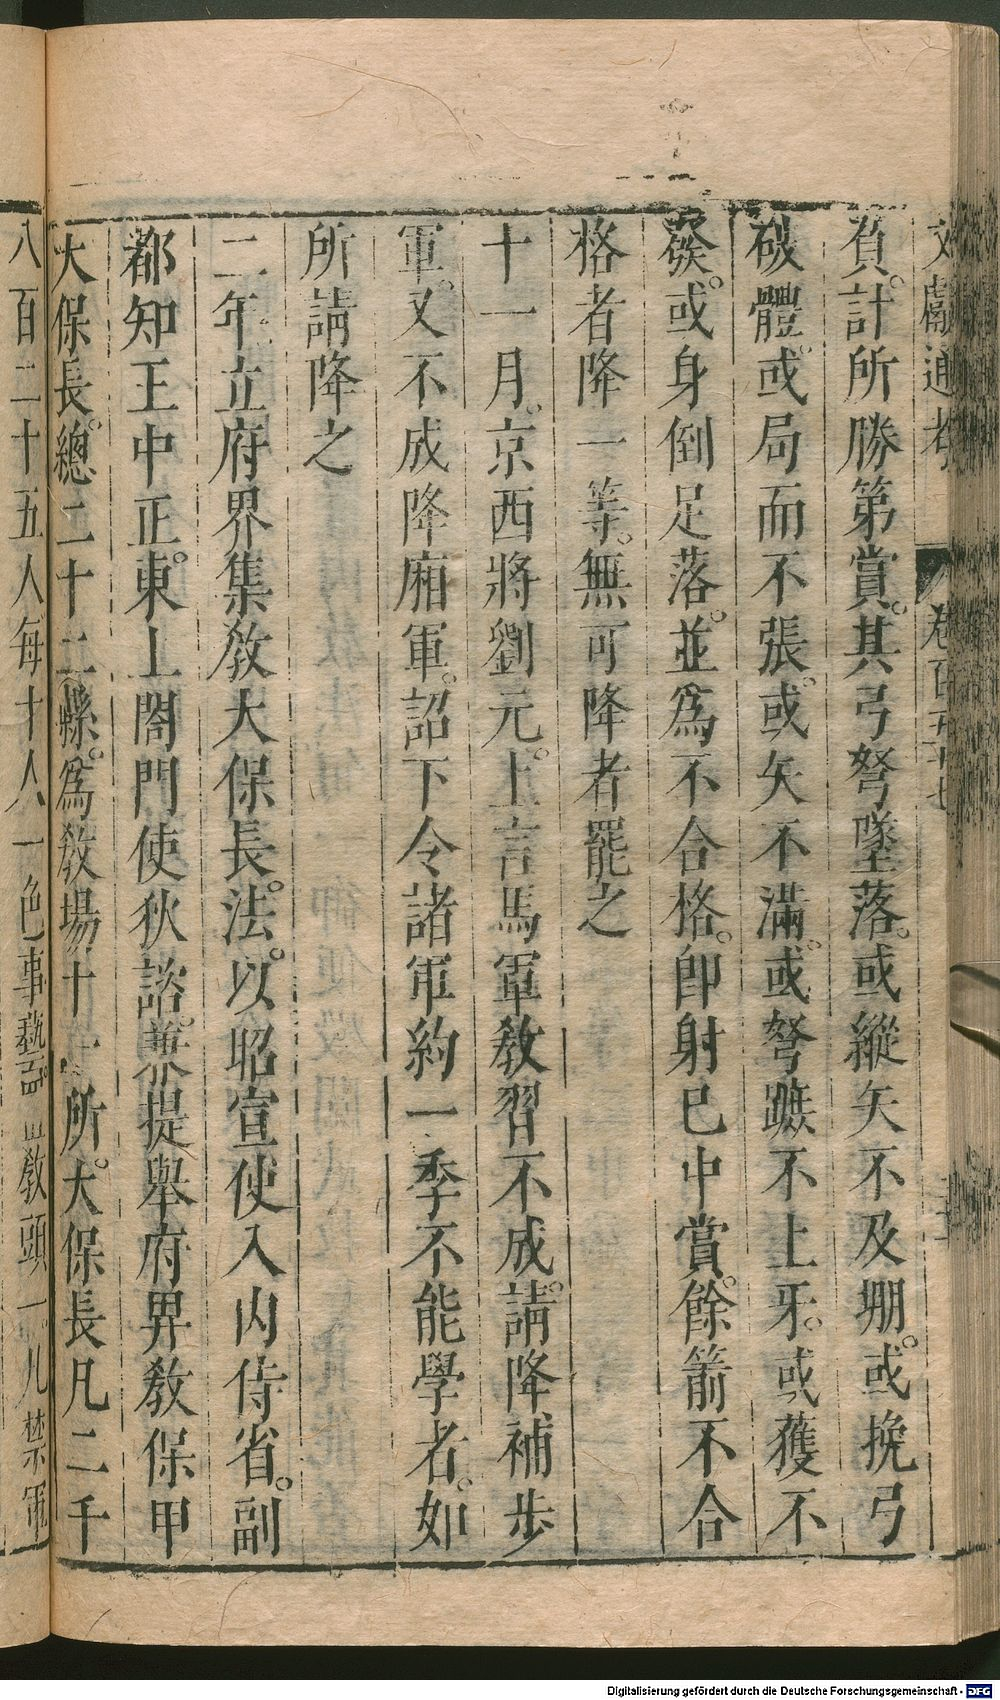 文獻通考 卷百五十七
負。計所勝第賞。其弓弩墜落。或縱矢不及堋。或挽弓
破體。或局而不張。或矢不滿。或弩蹠不上牙。或獲不
發。或身倒足落。並爲不合格。卽射已中賞。餘箭不合
格者降一等。無可降者罷之
十一月。京西將劉元。上言馬軍教習不成。請降補步
軍。又不成降廂軍。詔下令諸軍約一季不能學者。如
所請降之
二年立府界集教大保長。法。以昭宣使入内侍省。副
都知王中正。東上閤門使狄諮。兼提舉府界教保甲
大保長。總二十二縣。爲教場十一所。大保長凡二千
八百二十五人每十人一色事藝。置教頭一凡禁軍
Digitalisierung gefördert durch die Deutsche Forschungsgemeinschaft - DFG